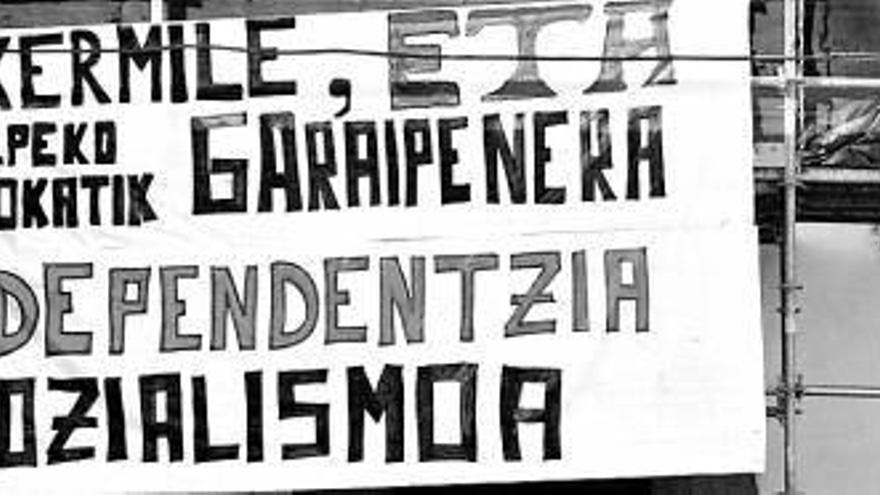 KERMILE, ETA
LPEKO
OKATIK GARAIPENERA
DEPENDENTZIA
OZIALISMOA